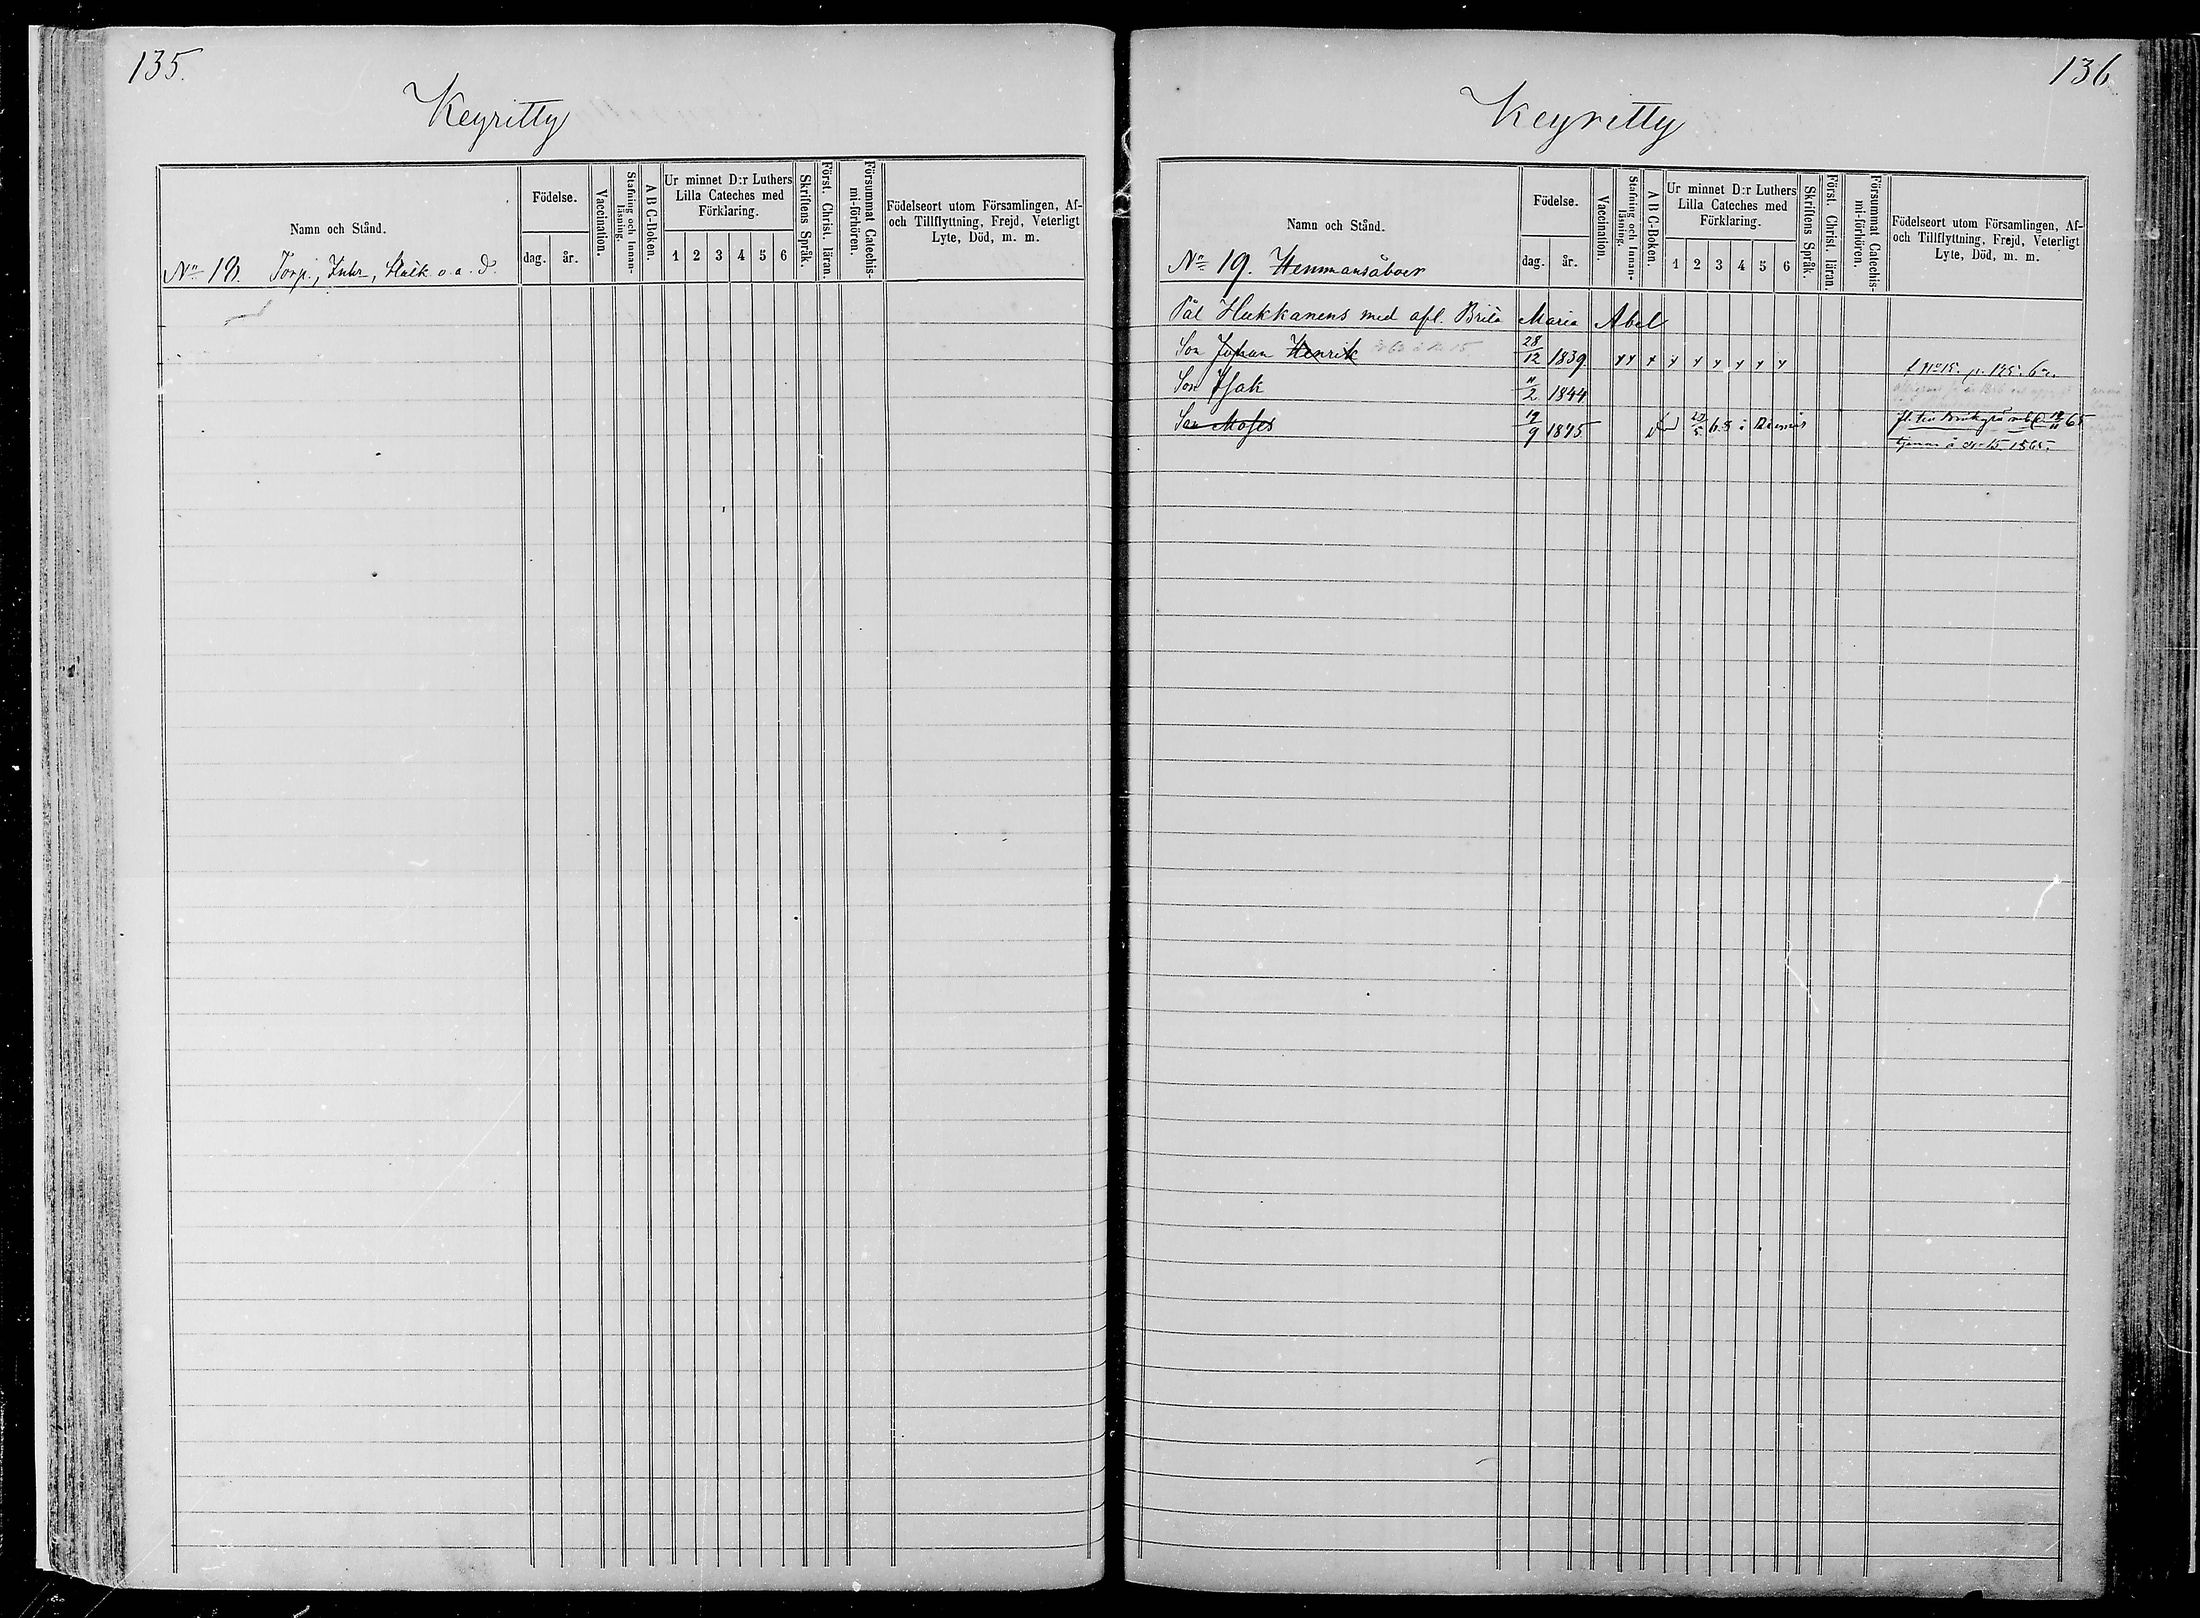 135.
Keyritty
Namn och Stånd.
Födelse.
dag. år.
Vaccination.
Stafning och Innanläsning.
A B C-Boken.
Ur minnet D:r Luthers
Lilla Cateches med
Förklaring.
1 2 3 4 5 6
Skriftens Språk.
Först. Christ. läran.
Försummat Catechis-
mi-förhören.
Födelseort utom Församlingen, Af-
och Tillflyttning, Frejd, Veterligt
Lyte, Död, m. m.
No 18. Torp., Inhr, Stålk o. a. d.
136
Keyritty
Namn och Stånd.
Födelse.
dag. år.
Vaccination.
Stafning och Innan-
läsning.
A B C-Boken.
Ur minnet D:r Luthers
Lilla Cateches med
Förklaring.
1 2 3 4 5 6
Skriftens Språk.
Först. Christ. läran.
Försummat Catechis-
mi-förhören.
Födelseort utom Församlingen, Af-
och Tillflyttning, Frejd, Veterligt
Lyte, Död, m. m.
No 19. Hemmansåboer
Pål Hukkanens med afl. Brita Maria Abel
Son Johan Henrik 28/12 1839 x x x x x x x x x
t No 15. p. 125.
Son Isak 11/2 1844
Son Moses 19/9 1845
1865.